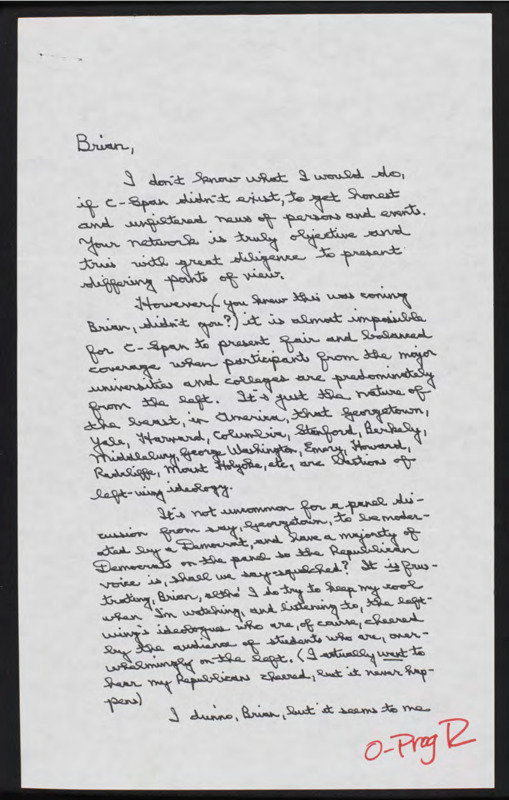 Brian,
I don't know what I would do,
if C-Span didn't exist, to get honest
and unfiltered news of persons and events.
Your network is truly objective and
tries with great diligence to present
differing points of view.
However, (you knew this was coming
Brian, didn't you?) it is almost impossible
for C-Span to present fair and balanced
coverage when participants from the major
universities and colleges are predominately
from the left. It's just the nature of
the beast, in America, that Georgetown,
Yale, Harvard, Columbia, Stanford, Berkely,
Middlebury, George Washington, Emory, Howard,
Radcliffe, Mount Holyoke, etc, are bastions of
left-wing ideology.
It's not uncommon for a panel dis-
cussion from say, Georgetown, to be moder-
ated by a Democrat, and have a majority of
Democrats on the panel so the Republican
voice is, shall we say-squelched? It is frus-
trating, Brian, altho I do try to keep my cool
when I'm watching, and listening to, the left-
wing's ideologues who are, of course, cheered
by the audience of students who are, over-
whelmingly on the left. (I actually want to
hear my Republicans cheered, but it never hap-
pens)
I dunno, Brian, but it seems to me
O-Prog R